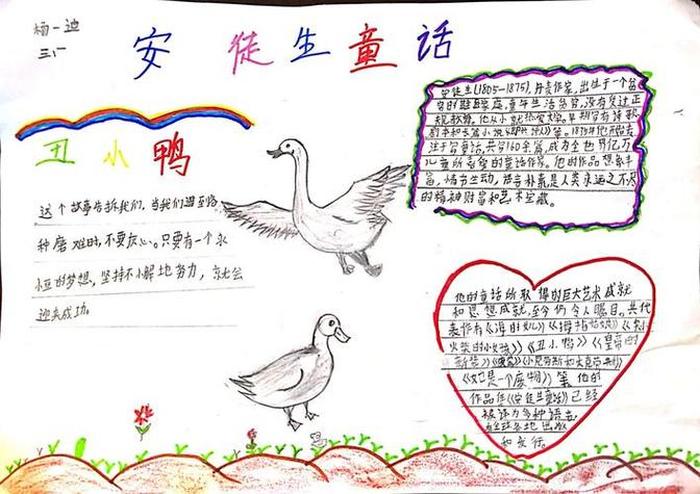 杨一迪
三、厂
安徒生童话
丑小鸭
这个故事告诉我们，当我们遇到各
种磨难时，不要灰心。只要有一个永
恒的梦想，坚持不懈地努力，就会
迎来成功。
安徒生(1805-1875)，丹麦作家，出生于一个贫
穷的鞋匠家，童年生活贫苦，没有受过正
规教育。他从小就热爱文学，早期写有诗歌
剧本和长篇小说《即兴诗人》等。1835年他开始专
注于写童话，共写160余篇，成为全世界亿万
儿童所喜爱的童话作家。他的作品想象丰
富，情节生动，语言朴素，是人类永远之不尽
的精神财富和艺术宝藏。
他的童话所取得的巨大艺术成就
和思想成就，至今仍令人瞩目。其代
表作有《海的女儿》《拇指姑娘》《卖小
火柴的小女孩》《丑小鸭》《皇帝的
新装》
《她是一个废物》等。他的
作品《安徒生童话》已经
被译为多种语言，
在全球各地出版
和发行。